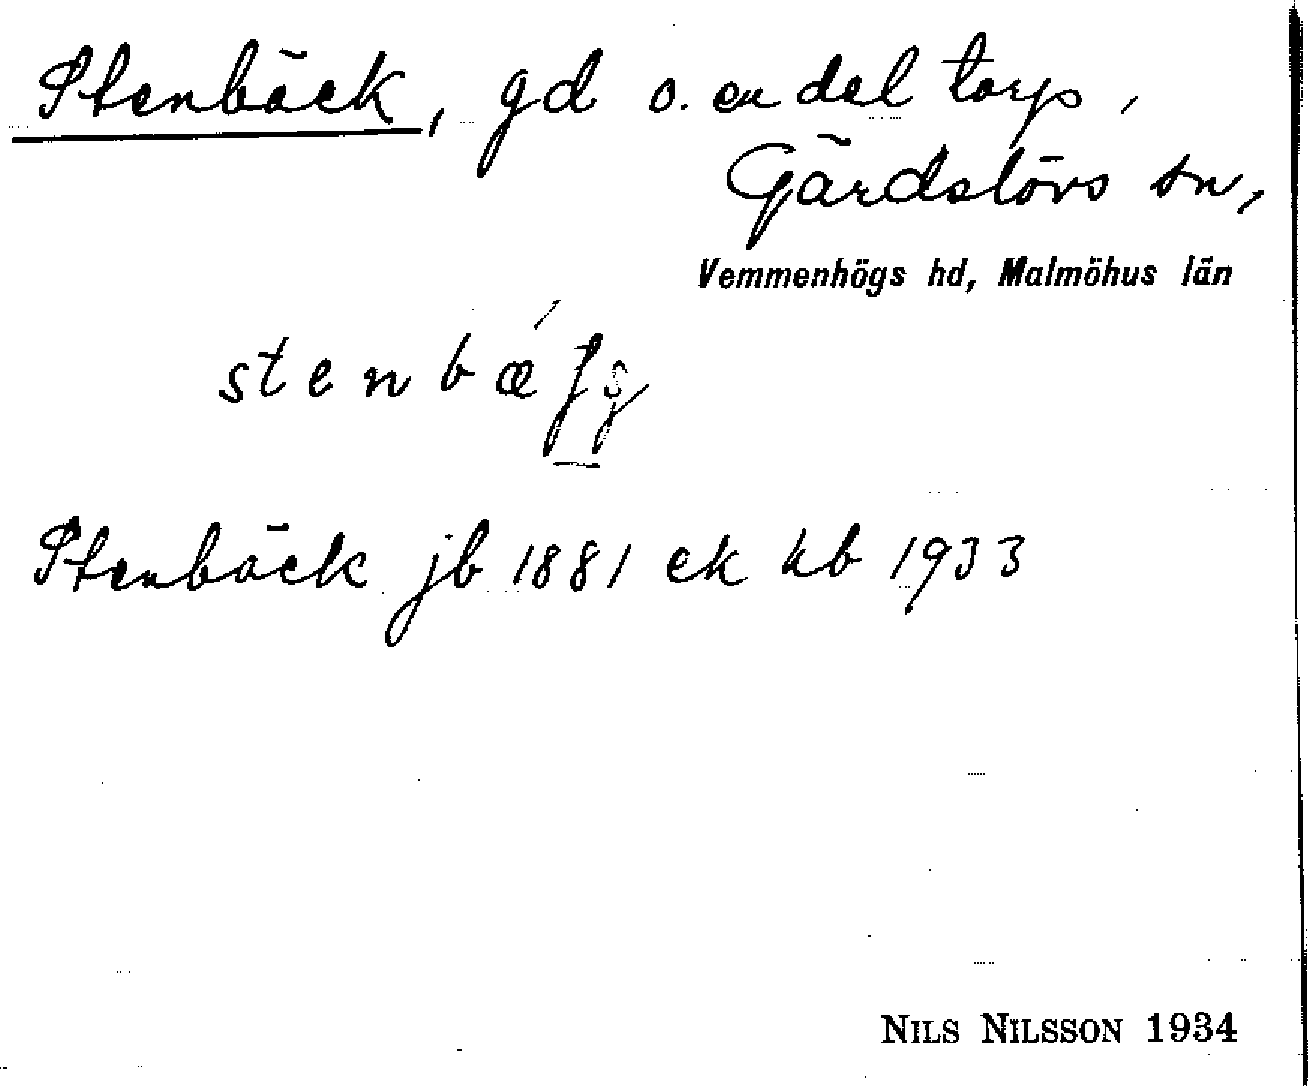 Stenbäck, gd o. en del torp,
Gärdslövs sn,
Vemmenhögs hd, Malmöhus län
Stenbäck jb 1881 ek kb 1933
NILS NILSSON 1934